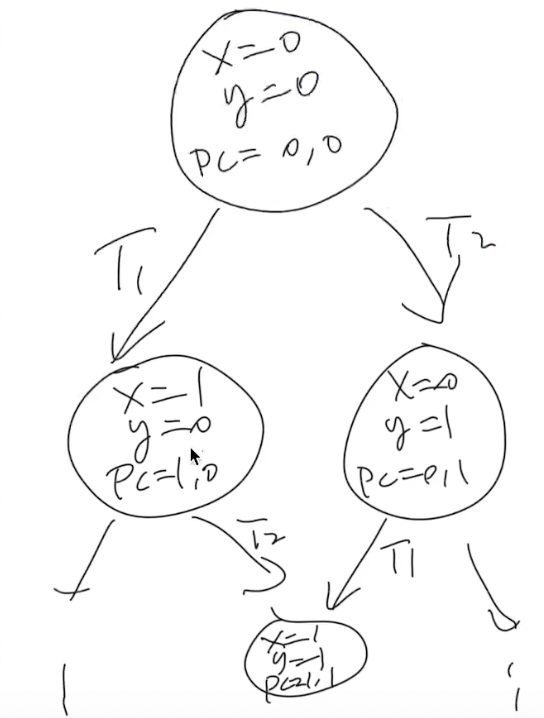 x=0
y=0
pc=0,0
T1
T2
x=1
y=0
pc=1,0
x=0
y=1
pc=0,1
T2
T1
x=1
y=1
pc=1,1